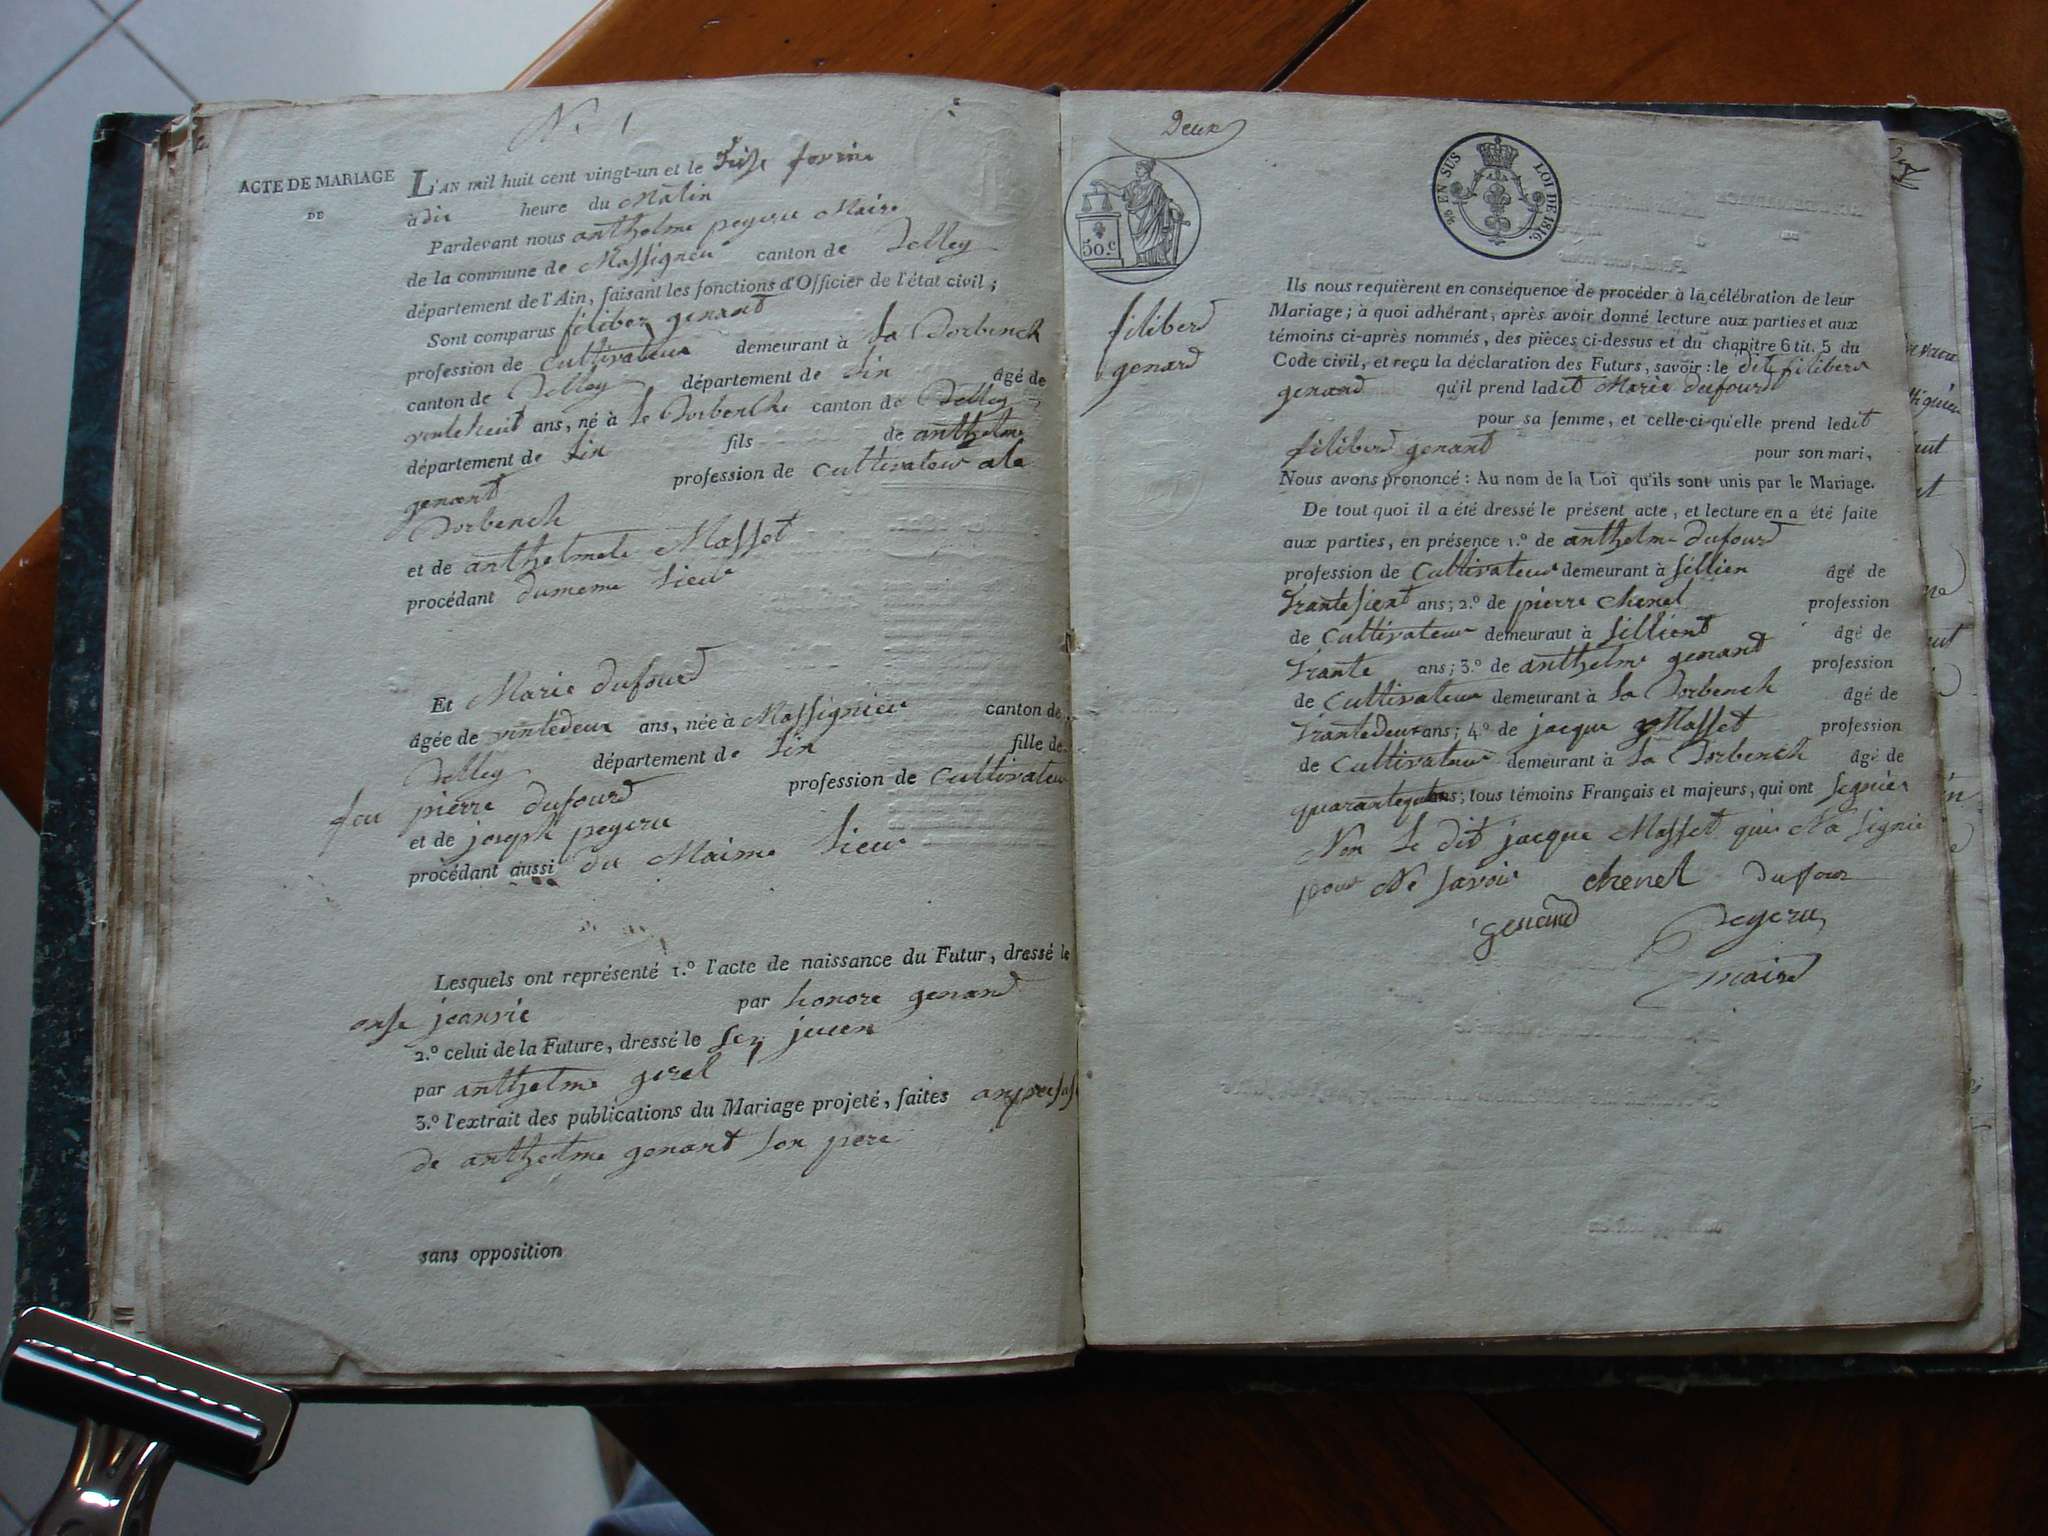 N.° 1
ACTE DE MARIAGE
DE
L'AN mil huit cent vingt-un et le
à dix heure du Matin
Pardevant nous anthelme peyeru Maire
de la commune de Massignieu canton de Belley
département de l'Ain, faisant les fonctions d'Officier de l'état civil;
Sont comparus filiber genant
profession de Cultivateur demeurant à la Dorbench
canton de Belley département de Lin âgé de
vintehuit ans, né à le Dorbenche canton de Belley
département de Lin fils de anthelme
genant profession de cultivateur ala
Dorbench
et de anthelmete Masset
procédant dumeme Lieu
Et Marie dufourd
âgée de vintedeux ans, née à Massignieu canton de
Belley département de Lin fille de
feu pierre dufourd profession de Cultivateur
et de joseph peyeru
procédant aussi du Maime Lieu
Lesquels ont représenté 1.° l'acte de naissance du Futur, dressé le
onse jeanvié par honore genand
2.° celui de la Future, dressé le juen
par anthelme gerel
3.° l'extrait des publications du Mariage projeté, faites
de anthelme genant son pere
sans opposition
Deux
50.c
EN SUS LOI DE 1816.
filiberd
genard
Ils nous requièrent en conséquence de procéder à la célébration de leur
Mariage; à quoi adhérant, après avoir donné lecture aux parties et aux
témoins ci-après nommés, des pièces ci-dessus et du chapitre 6 tit. 5 du
Code civil, et reçu la déclaration des Futurs, savoir: le dit filiberd
genand qu'il prend ladit Marie dufourd
pour sa femme, et celle-ci qu'elle prend ledit
filiberd genant pour son mari,
Nous avons prononcé: Au nom de la Loi qu'ils sont unis par le Mariage.
De tout quoi il a été dressé le présent acte, et lecture en a été faite
aux parties, en présence 1.° de anthelme dufourd
profession de Cultivateur demeurant à Sillien âgé de
ans; 2.° de pierre chenel profession
de Cultivateur demeurant à Sillient âgé de
Trante ans; 3.° de anthelme genant profession
de Cultivateur demeurant à la Dorbench âgé de
Trantedeux ans; 4.° de jacque Masset profession
de Cultivateur demeurant à la Dorbench âgé de
ans; tous témoins Français et majeurs, qui ont Segnier
Non le dit jacque Masset qui Na Signie
pour Ne savoir chenel dufour
genand peyeru
maire